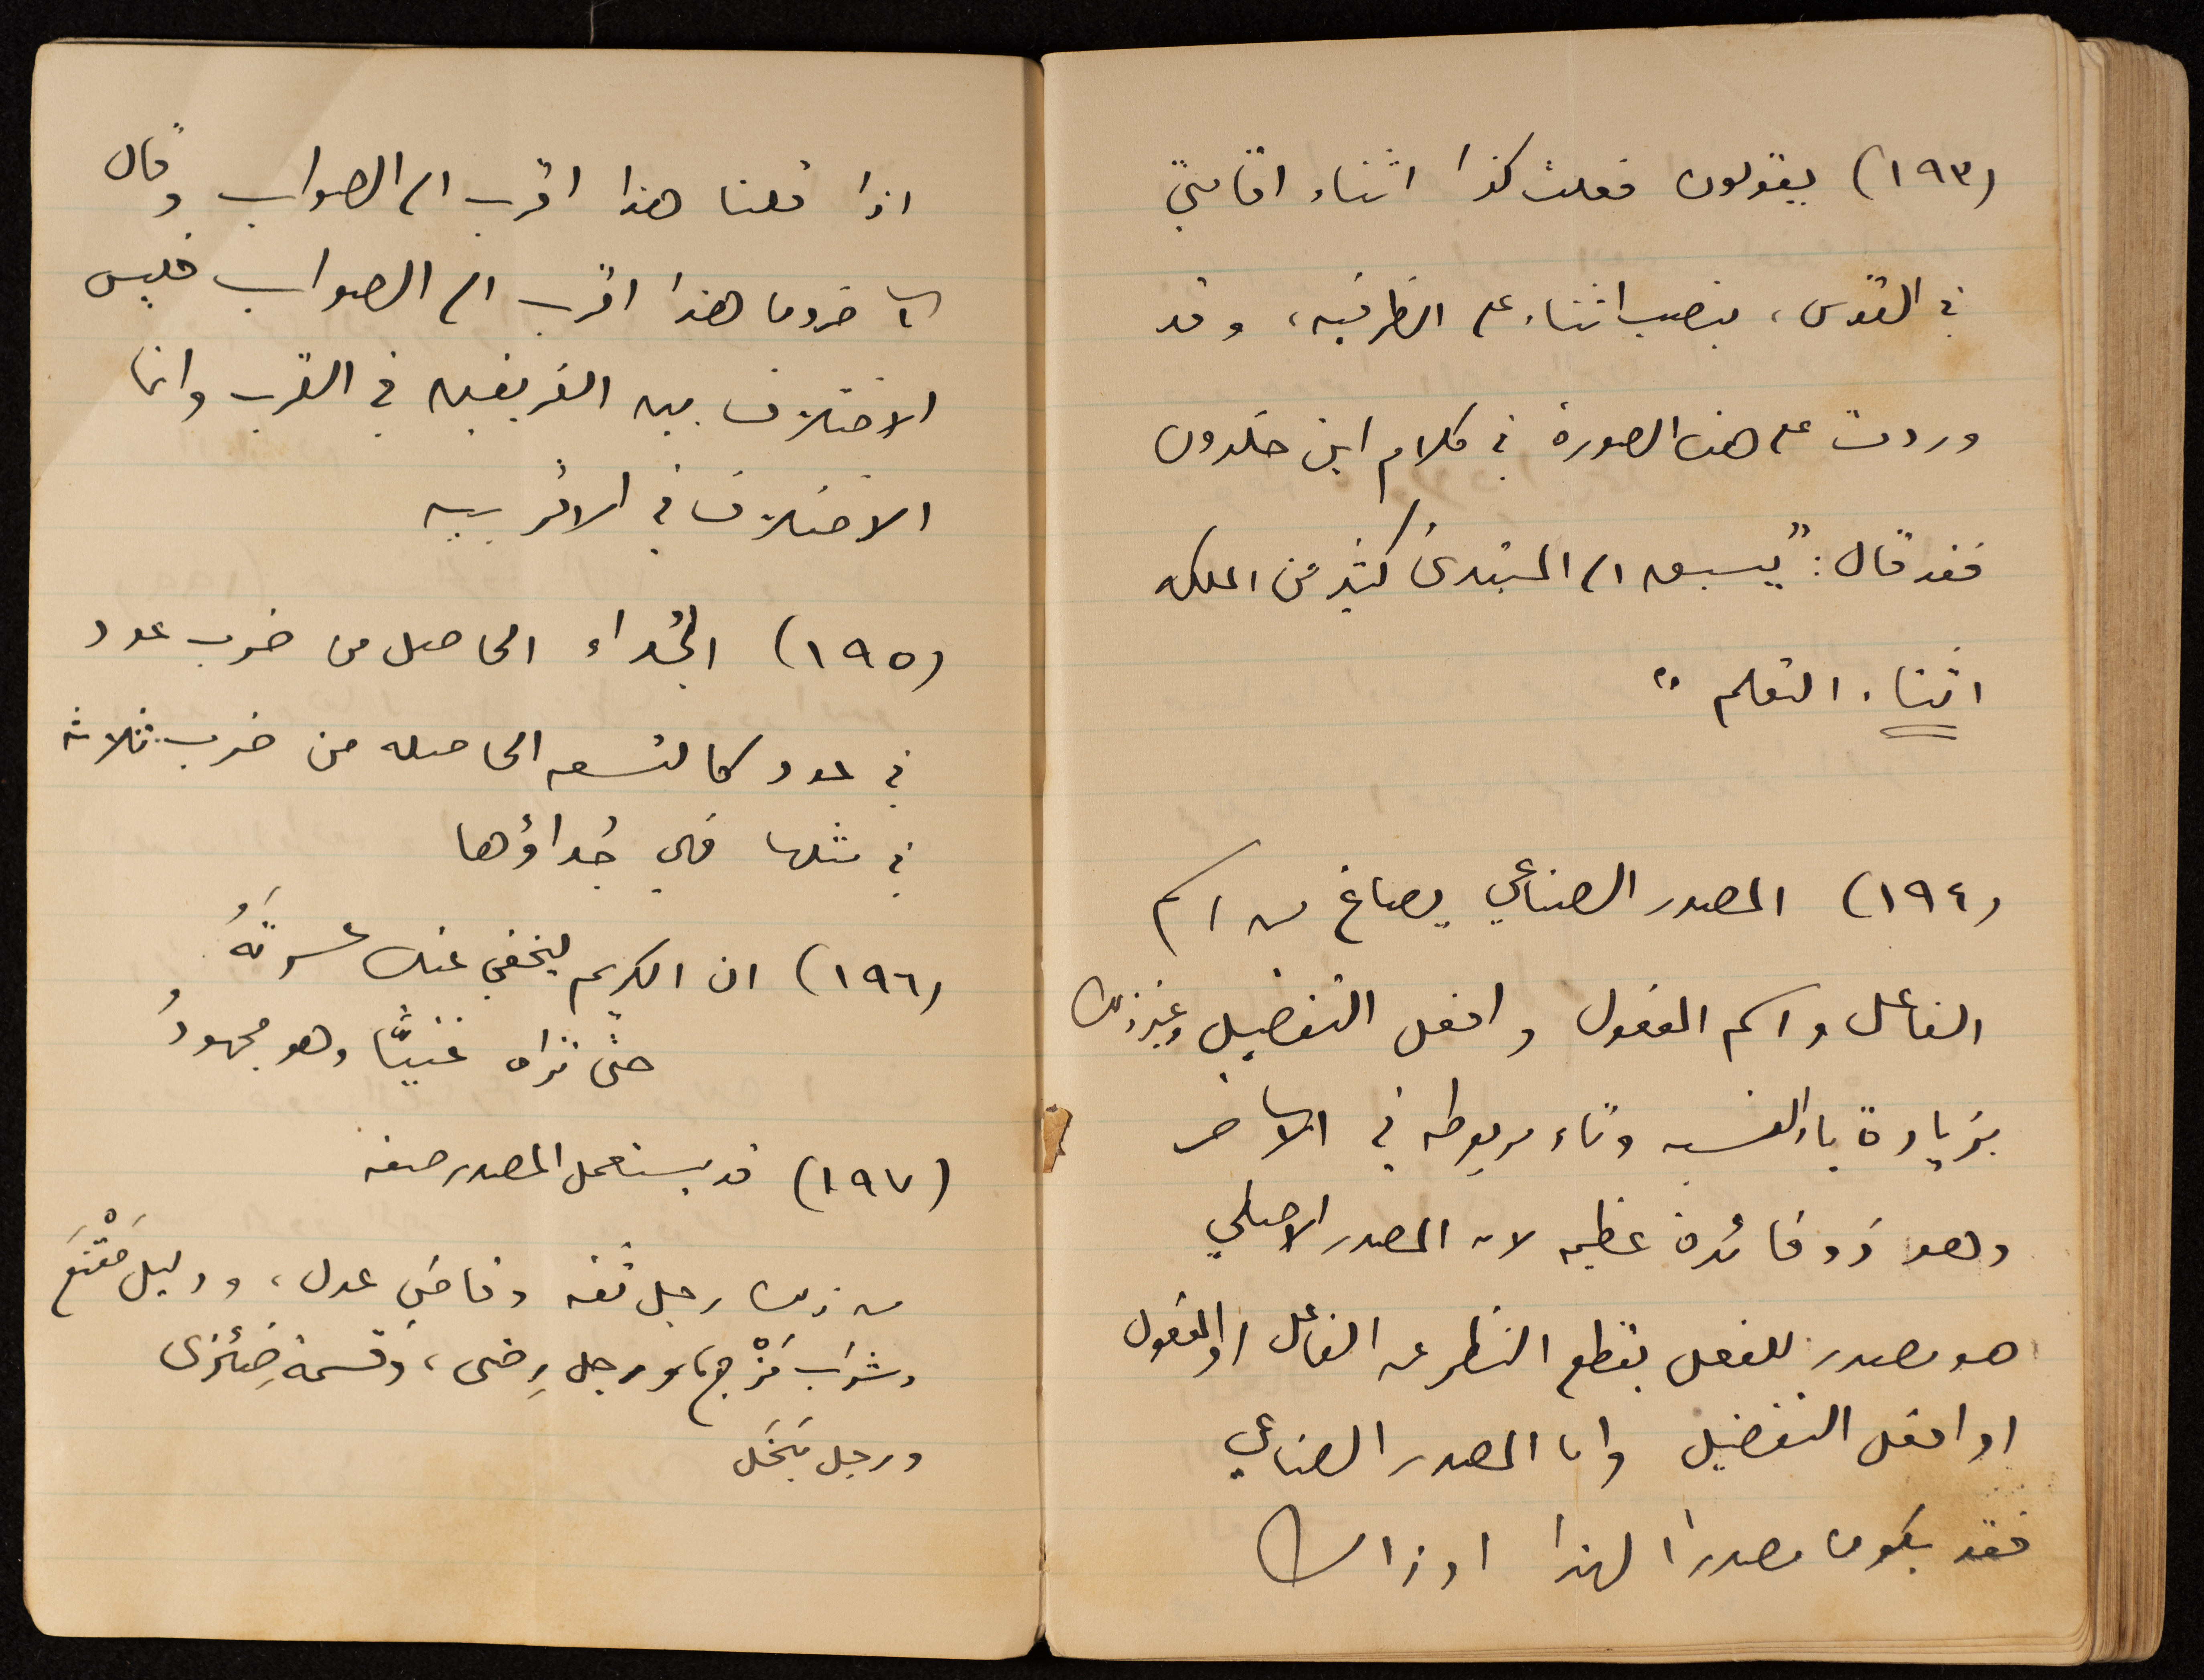 (١٩٣) يقولون فعلت كذا اثناء اقامتي
في القدس، بنصب اثناء على الظرفيه، وقد
وردت على هذه الصورة في كلام ابن خلدون
فقد قال: "يسبق الى المبتدئ كثير من الملكه
اثناء التعلم"
(١٩٤) المصدر الصناعي يصاغ من اسم
الفاعل واسم المفعول وافعل التفضيل وغير ذلك
بزيادة ياء النسبه وتاء مربوطه في الآخر
وهو ذو فائدة عظيمه لان المصدر الاصلي
هو مصدر للفعل بقطع النظر عن الفاعل او المفعول
او افعل التفضيل واما المصدر الصناعي
فقد يكون مصدرا لهذا او ذاك
اذا قلنا هذا اقرب الى الصواب وقال
الآخرون هذا اقرب الى الصواب فليس
الاختلاف بين الفريقين في القرب وانما
الاختلاف في الاقربيه
(١٩٥) الجُداء الحاصل من ضرب عدد
في عدد كالتسعه الحاصله من ضرب ثلاثه
في مثلها فهي جُداؤها
(١٩٦) ان الكريم ليخفي عنك عسرتَهُ
حتى تراه غنيًّا وهو مجهودُ
(١٩٧) قد يستعمل المصدر صفه
من ذلك رجل ثقه وقاضي عدل، ودليل مَقْنَع
وشراب مَزْج، ورجل رِضى، وقسمة ضِئزى
ورجل بَخَل